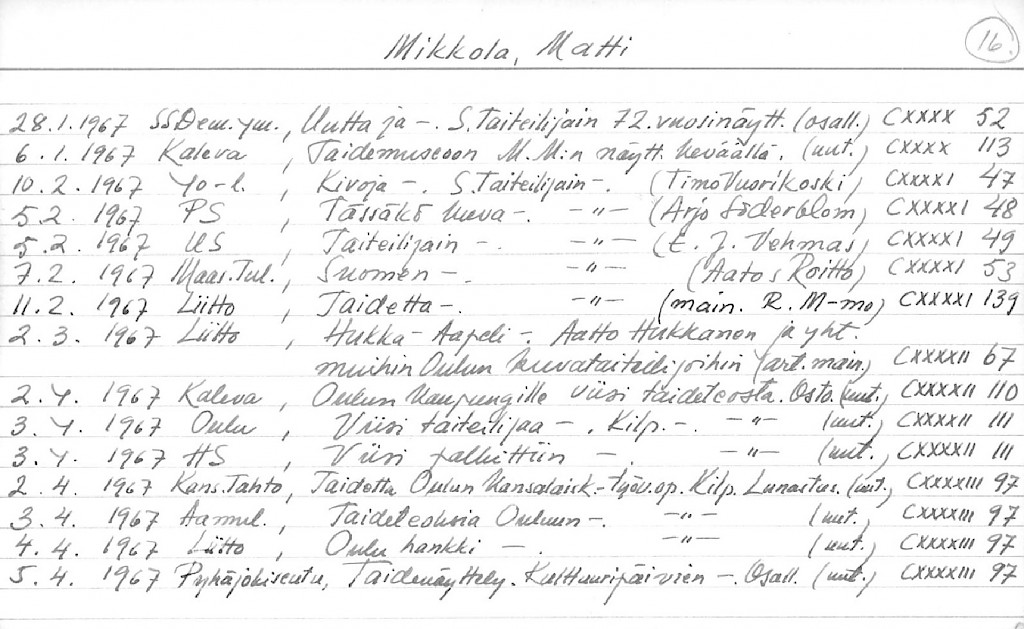 Mikkola, Matti 16.
28.1.1967 SSDem.ym., Uutta ja -. S.Taiteilijain 72.vuosinäytt. (osall.) CXXXX 52
6.1.1967 Kaleva, Taidemuseoon M.M:n näytt. keväällä. (uut.) CXXXX 113
10.2.1967 Yo-l., Kivoja -. S.Taiteilijain -. (Timo Vuorikoski) CXXXXI 47
5.2.1967 PS, Tässäkö kuva -. -"- (Arjo Söderblom) CXXXXI 48
5.2.1967 US, Taiteilijain -. -"- (E.J. Vehmas) CXXXXI 49
7.2.1967 Maas.Tul., Suomen -. -"- (Aatos Roitto) CXXXXI 53
11.2.1967 Liitto, Taidetta -. -"- (main. R.M-mo) CXXXXI 139
2.3.1967 Liitto, Hukka-Aapeli - Aatto Hukkanen ja yht.
muihin Oulun kuvataiteilijoihin (art.main.) CXXXXII 67
2.4.1967 Kaleva, Oulun kaupungille viisi taideteosta. Osto. (uut.) CXXXXII 110
3.4.1967 Oulu, Viisi taiteilijaa -. Kilp. -. -"- (uut.) CXXXXII 111
3.4.1967 HS, Viisi palkittiin -. -"- (uut.) CXXXXII 111
2.4.1967 Kans.Tahto, Taidetta Oulun Kansalaisk.-työv.op. Kilp. Lunastus. (uut.) CXXXXIII 97
3.4.1967 Aamul., Taideteoksia Ouluun -. -"- (uut.) CXXXXIII 97
4.4.1967 Liitto, Oulu hankki -. -"- (uut.) CXXXXIII 97
5.4.1967 Pyhäjokiseutu, Taidenäyttely. Kulttuuripäivien -. Osall. (uut.) CXXXXIII 97